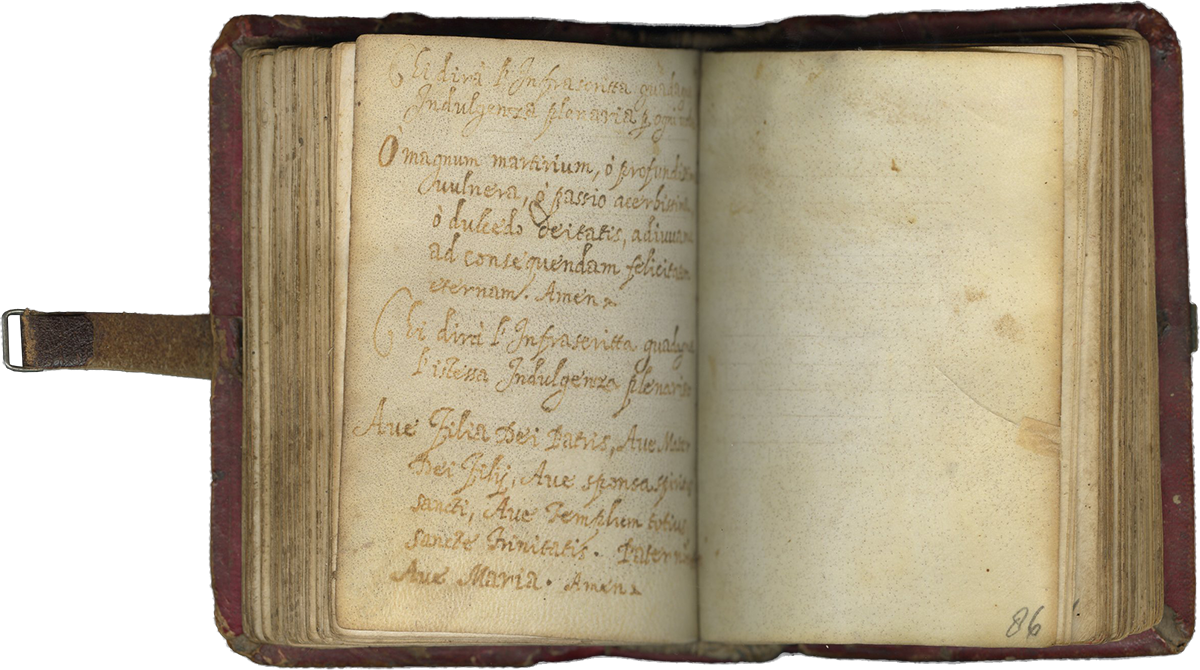 Chi dirà l'Infrascritta
Indulgenza plenaria p ogni
Ò magnum martirium, ò profundis
vulnera, ò passio acerbissima,
ò dulcedo deitatis, adiuua
ad consequendam felicitatem
eternam. Amen
Chi dirà l'Infrascritta
l'istessa Indulgenza plenaria
Aue Filia Dei Patris, Aue Mater
Dei Filij, Aue sponsa spiritus
sancti, Aue Templum totius
sancte Trinitatis. Pater n
Aue Maria. Amen
86